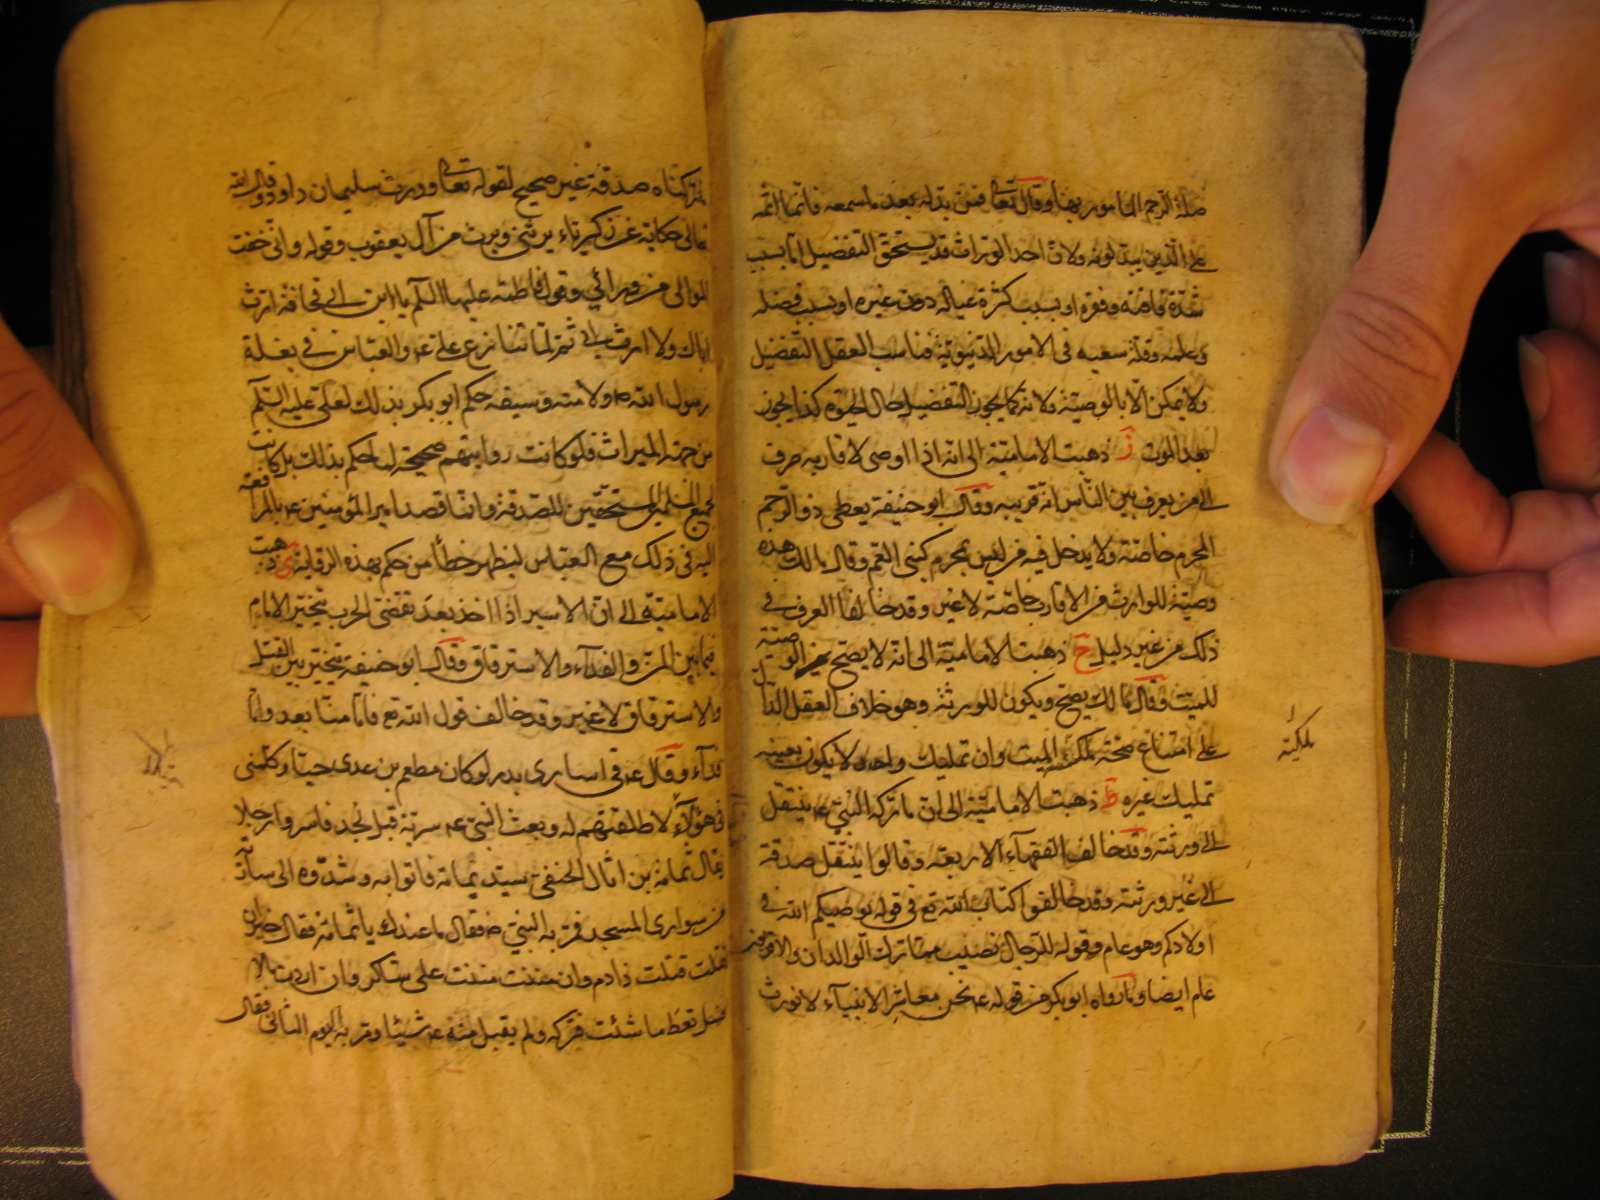 صلة الرحم المامور بها وقال تعالى فمن بدله بعد ما سمعه فانما اثمه
على الذين يبدلونه ولان احد الوراث قد يستحق التفضيل اما بسبب
شدة فاقته وفقره او بسبب كثرة عياله دون غيره او بسبب فضله
وعلمه وقلة سعيه فى الامور الدنيوية فناسب العقل التفضيل
ولا يمكن الا بالوصية ولانه كما يجوز التفضيل حال الحيوة كذا يجوز
بعد الموت ز ذهبت الامامية الى انه اذا اوصى لاقاربه صرف
الى من يعرف بين الناس انه قريبه وقال ابو حنيفة يعطى ذو الرحم
المحرم خاصة ولا يدخل فيه من ليس بمحرم كبنى العم وقال مالك هذه
وصية للوارث من الاقارب خاصة لا غير وقد خالفا العرف فى
ذلك من غير دليل ح ذهبت الامامية الى انه لا يصح الوصية
للميت وقال مالك يصح ويكون للورثة وهو خلاف العقل الدال
على امتناع صحة تملك الميت وان تمليك واحد لا يكون بعينه
تمليك غيره ط ذهبت الامامية الى ان ما تركه النبى ع ينتقل
الى ورثته وقد خالف الفقهاء الاربعة وقالوا ينتقل صدقة
الى غير ورثته وقد خالفوا كتاب الله تع فى قوله يوصيكم الله فى
اولادكم وهو عام وقوله للرجال نصيب مما ترك الوالدان والاقربون
عام ايضا وما رواه ابو بكر من قوله ع نحن معاشر الانبياء لا نورث
ما تركناه صدقة غير صحيح لقوله تعالى وورث سليمان داود وقال الله
تعالى حكاية عن زكرياء يرثنى ويرث من آل يعقوب وقوله وانى خفت
الموالى من ورائي وقول فاطمة عليها السلم يا ابن ابى قحافة اترث
اباك ولا ارث ابى ثم لما تنازع على ع والعباس فى بغلة
رسول الله ص ولامته وسيفه حكم ابو بكر بذلك لعلى عليه السلم
من جهة الميراث فلو كانت روايتهم صحيحة لما حكم بذلك بل كانت
لجميع المسلمين المستحقين للصدقة وانما قصد امير المؤمنين ع بالمرافعة
اليه فى ذلك مع العباس ليظهر خطأ من حكم بهذه الرواية ى ذهبت
الامامية الى ان الاسير اذا اخذ بعد تقضى الحرب يتخير الامام
فيما بين المن والفداء والاسترقاق وقال ابو حنيفة يتخير بين القتل
والاسترقاق لا غير وقد خالف قول الله تع فاما منا بعد واما
فداء وقال ع فى اسارى بدر لو كان مطعم بن عدى حيا وكلمنى
فى هؤلاء لاطلقتهم له وبعث النبى ع سرية قبل نجد فاسروا رجلا
يقال ثمامة بن اثال الحنفى سيد يمامة فاتوا به وشدوه الى سارية
من سوارى المسجد فمر به النبى ص فقال ما عندك يا ثمامة فقال خير ان
قتلت قتلت ذا دم وان مننت مننت على شاكر وان اردت مالا
فسل تعط ما شئت فتركه ولم يقبل منه ع شيئا ومر به اليوم الثانى فقال